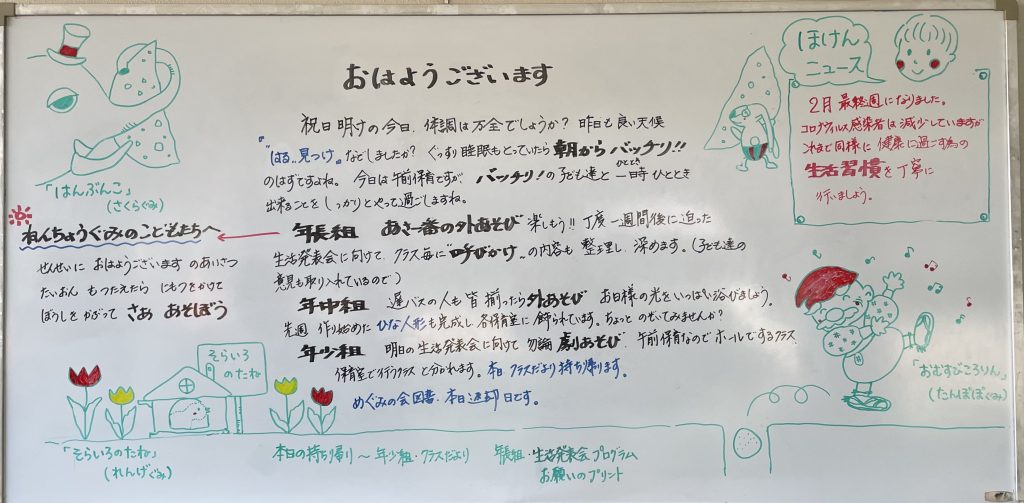 おはようございます
祝日明けの今日、体調は万全でしょうか？昨日も良い天候
"はる。見つけ。などしましたか？ぐっすり睡眠もとっていたら朝からバッチリ!!
のはずですよね。今日は午前保育ですが、バッチリ！の子ども達と一日寺ひととき ひととき
出来ることをしっかりとやって過ごしますね。
年長組 あさ一番の外あそび 楽しもう!!丁度一週間後に迫った
生活発表会に向けて、クラス毎に"呼びかけ"の内容も整理し、深めます。(子ども達の
意見も取り入れているので)
年中組 遅バスの人も皆揃ったら外あそび お日様の光をいっぱい浴びましょう。
先週 作り始めたひな人形も完成し各保育室に飾られています。ちょっとのぞいてみませんか？
年少組 明日の生活発表会に向けて勿論劇あそび。午前保育なのでホールでするクラス
保育室で行うクラスと分かれます。本日クラスだより持ち帰ります。
めぐみの会図書、本日返却日です。
「はんぶんこ」
(さくらぐみ)
ねんちょうぐみのこどもたちへ
せんせいに おはようございます のあいさつ
たいおん もつたえたら にもつをかけて
ぼうしをかぶって さあ あそぼう
ほけん
ニュース
2月最終週になりました。
コロナウィルス感染者は減少していますが
これまで同様に健康に過ごす為の
生活習慣を丁寧に
行いましょう。
「おむすびころりん」
(たんぽぽぐみ)
そらいろ
のたね
「そらいろのたね」
(れんげぐみ)
本日の持ち帰り〜年少組・クラスだより
年長組・生活発表会プログラム
お願いのプリント